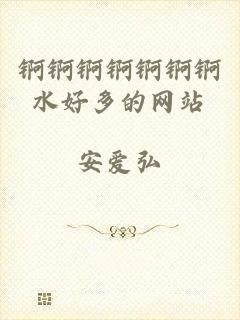 锕锕锕锕锕锕锕
水好多的网站
安爱弘